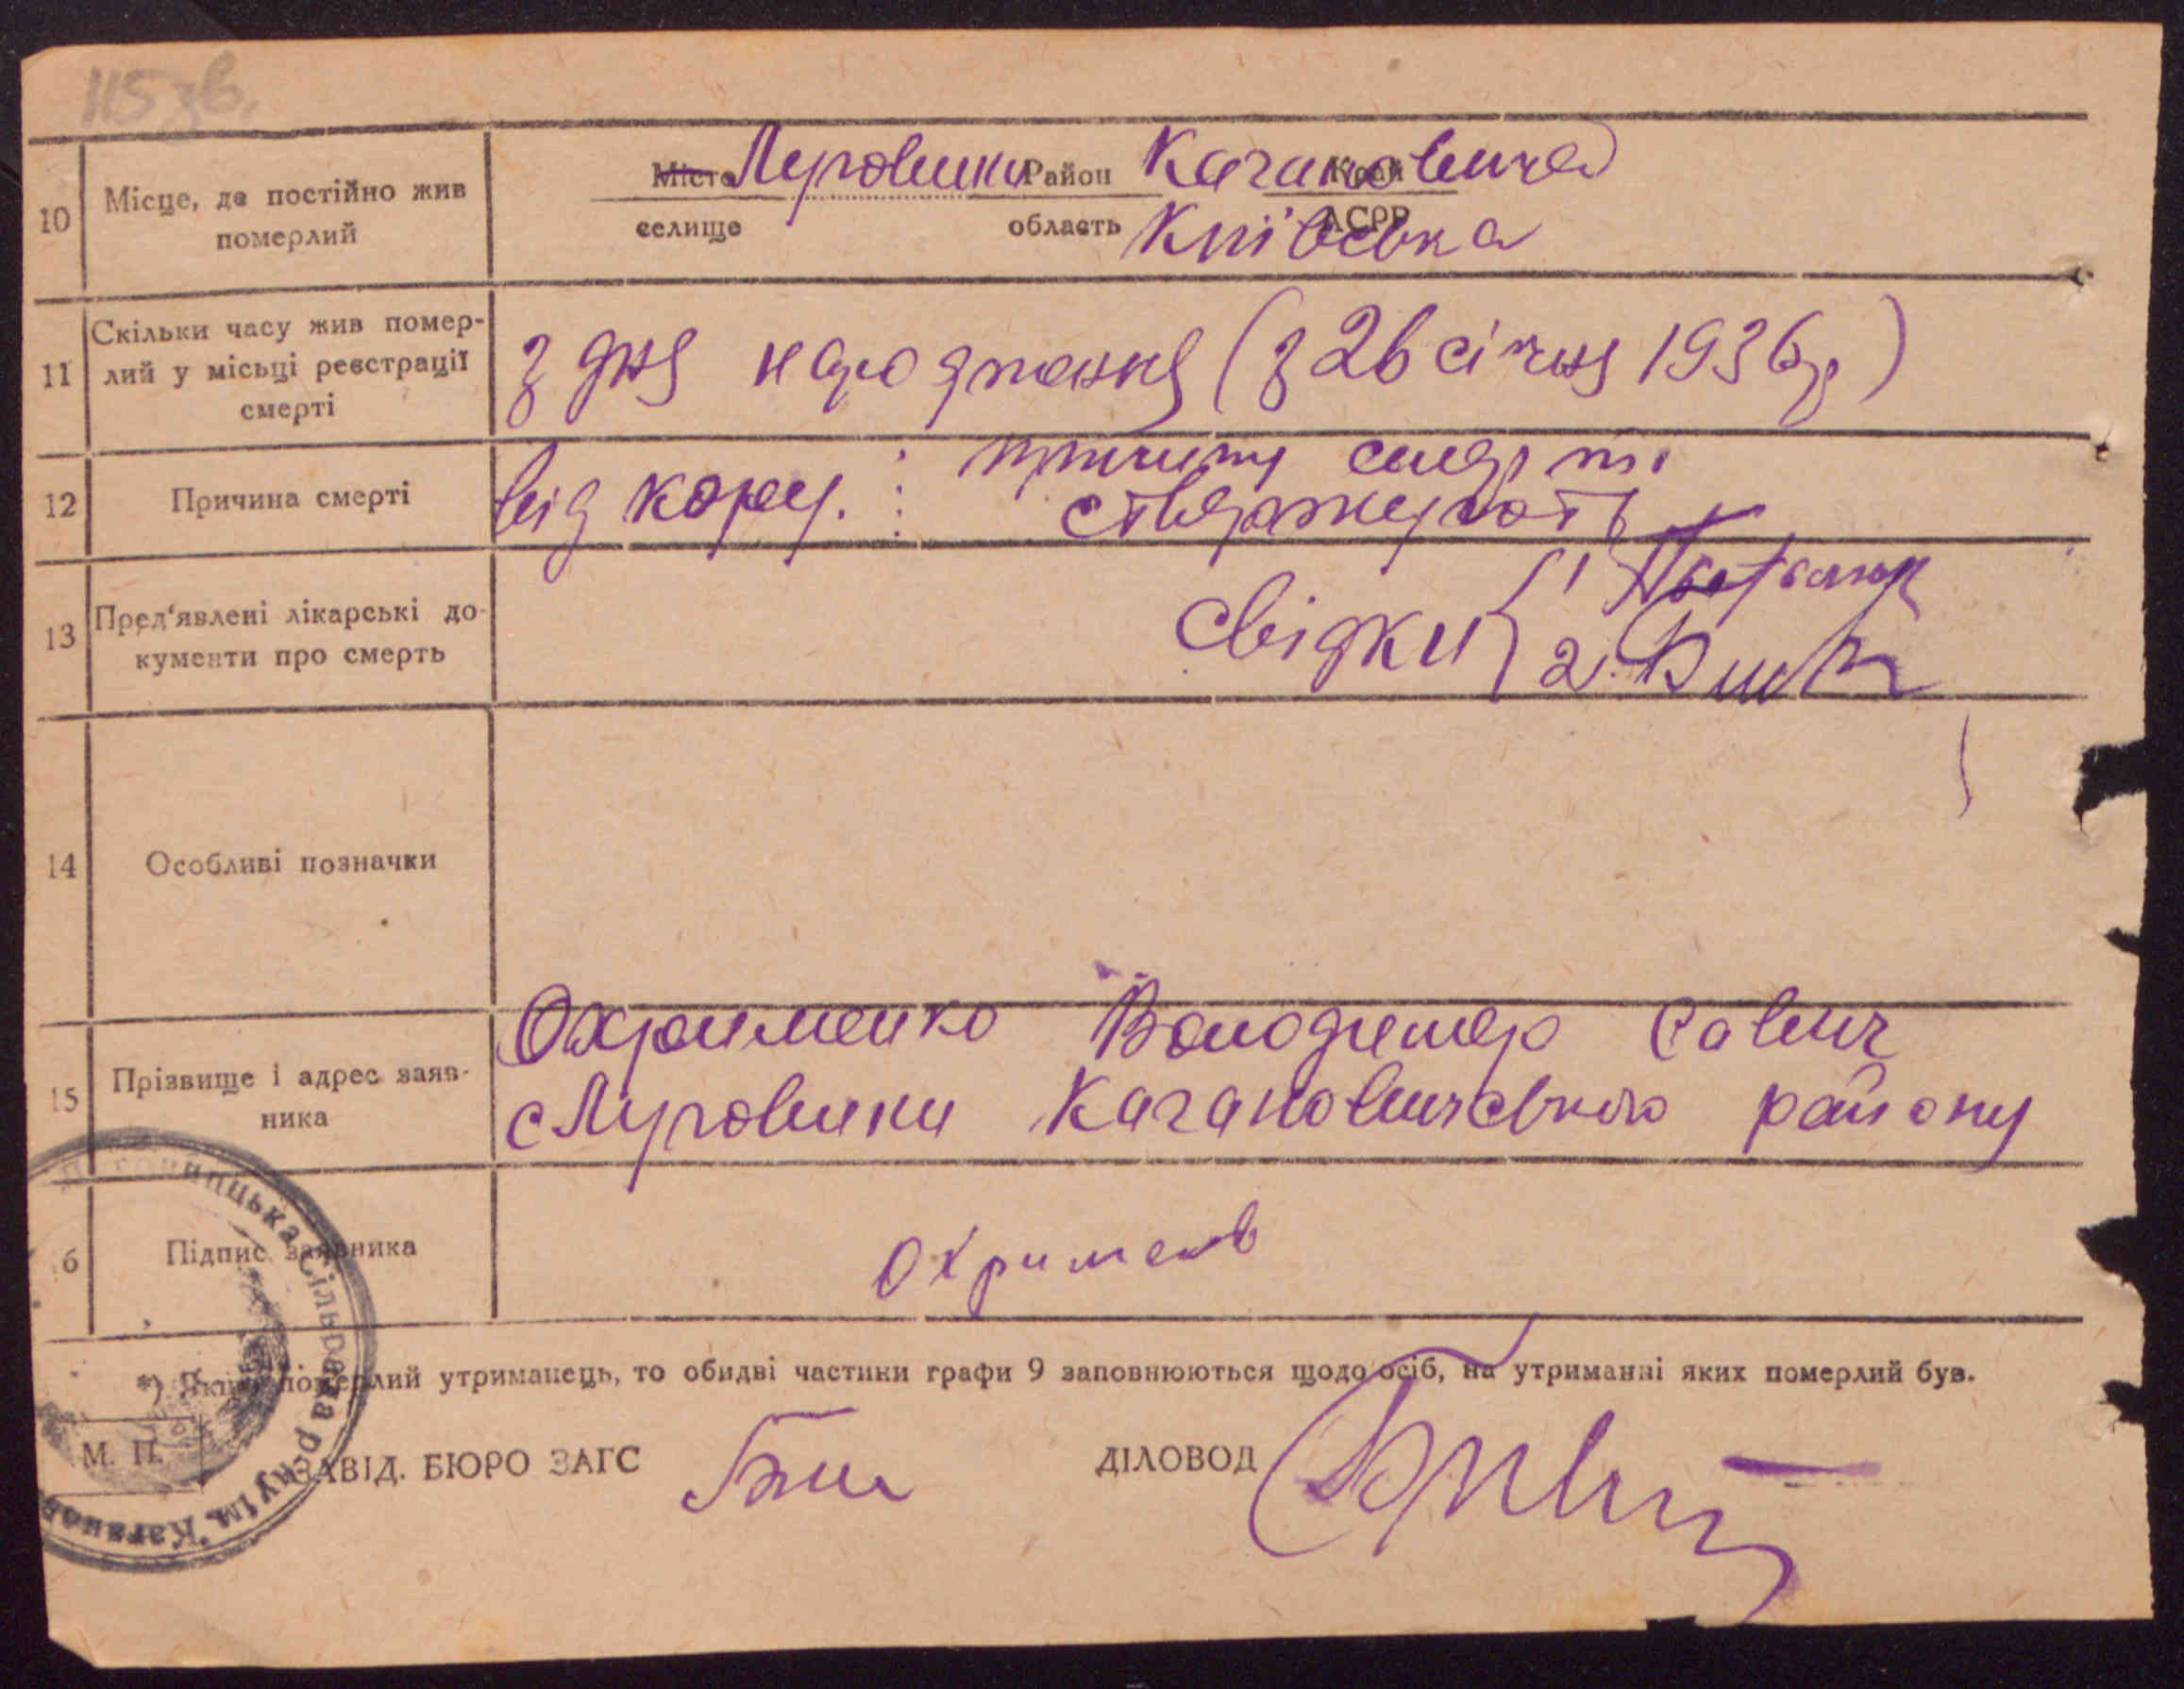 115 зв.
10 Місце, де постійно жив померлий
Місто Луговики Район Кагановича Край
селище область Київська АСРР
11 Скільки часу жив помер-
лий у місьці реєстрації
смерті
з дня народження (з 26 січня 1936 р)
12 Причина смерті
від кору. : причину смерті
стверджують
13 Пред'явлені лікарські до-
кументи про смерть
Свідки 1
2.
14 Особливі позначки
15 Прізвище і адрес заяв-
ника
Охрименко Володимер Савич
с Луговики Кагановичського району
6 Підпис заявника
Охрименко
*) Якщо померлий утриманець, то обидві частини графи 9 заповнюються щодо осіб, на утриманні яких померлий був.
М. П.
ЗАВІД. БЮРО ЗАГС
ДІЛОВОД
сільська рада р-ну ім. Каганов